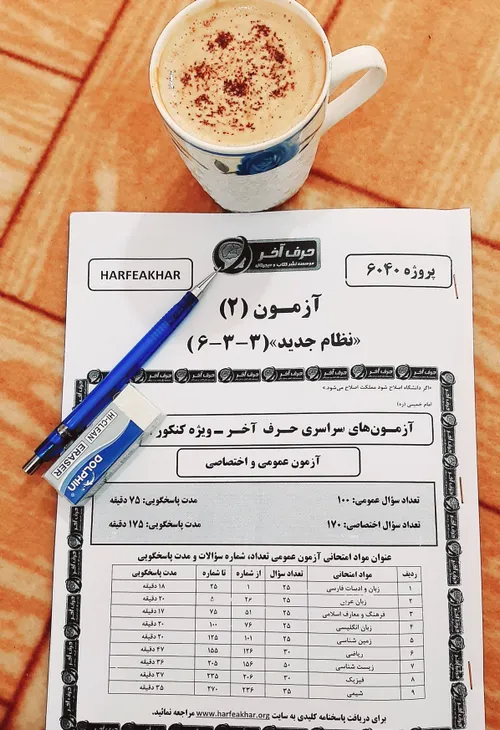 حرف آخر
موسسه نشر کتاب و دیجیتال
HARFEAKHAR
پروژه ۶۰۴۰
آزمون (۲)
«نظام جدید»(۳-۳-۶)
«اگر دانشگاه اصلاح شود مملکت اصلاح می‌شود.»
امام خمینی (ره)
آزمون‌های سراسری حرف آخر - ویژه کنکور
آزمون عمومی و اختصاصی
تعداد سؤال عمومی: ۱۰۰ مدت پاسخگویی: ۷۵ دقیقه
تعداد سؤال اختصاصی: ۱۷۰ مدت پاسخگویی: ۱۷۵ دقیقه
عنوان مواد امتحانی آزمون عمومی تعداد، شماره سؤالات و مدت پاسخگویی
ردیف مواد امتحانی تعداد سؤال از شماره تا شماره مدت پاسخگویی
۱ زبان و ادبیات فارسی ۲۵ ۱ ۲۵ ۱۸ دقیقه
۲ زبان عربی ۲۵ ۲۶ ۵ ۲۰ دقیقه
۳ فرهنگ و معارف اسلامی ۲۵ ۵۱ ۷۵ ۱۷ دقیقه
۴ زبان انگلیسی ۲۵ ۷۶ ۱۰۰ ۲۰ دقیقه
۵ زمین شناسی ۲۵ ۱۰۱ ۱۲۵ ۲۰ دقیقه
۶ ریاضی ۳۰ ۱۲۶ ۱۵۵ ۴۷ دقیقه
۷ زیست شناسی ۵۰ ۱۵۶ ۲۰۵ ۳۶ دقیقه
۸ فیزیک ۳۰ ۲۰۶ ۲۳۵ ۳۷ دقیقه
۹ شیمی ۳۵ ۲۳۶ ۲۷۰ ۳۵ دقیقه
برای دریافت پاسخنامه کلیدی به سایت www.harfeakhar.org مراجعه نمائید.
HI-CLEAN ERASER
DOLPHIN